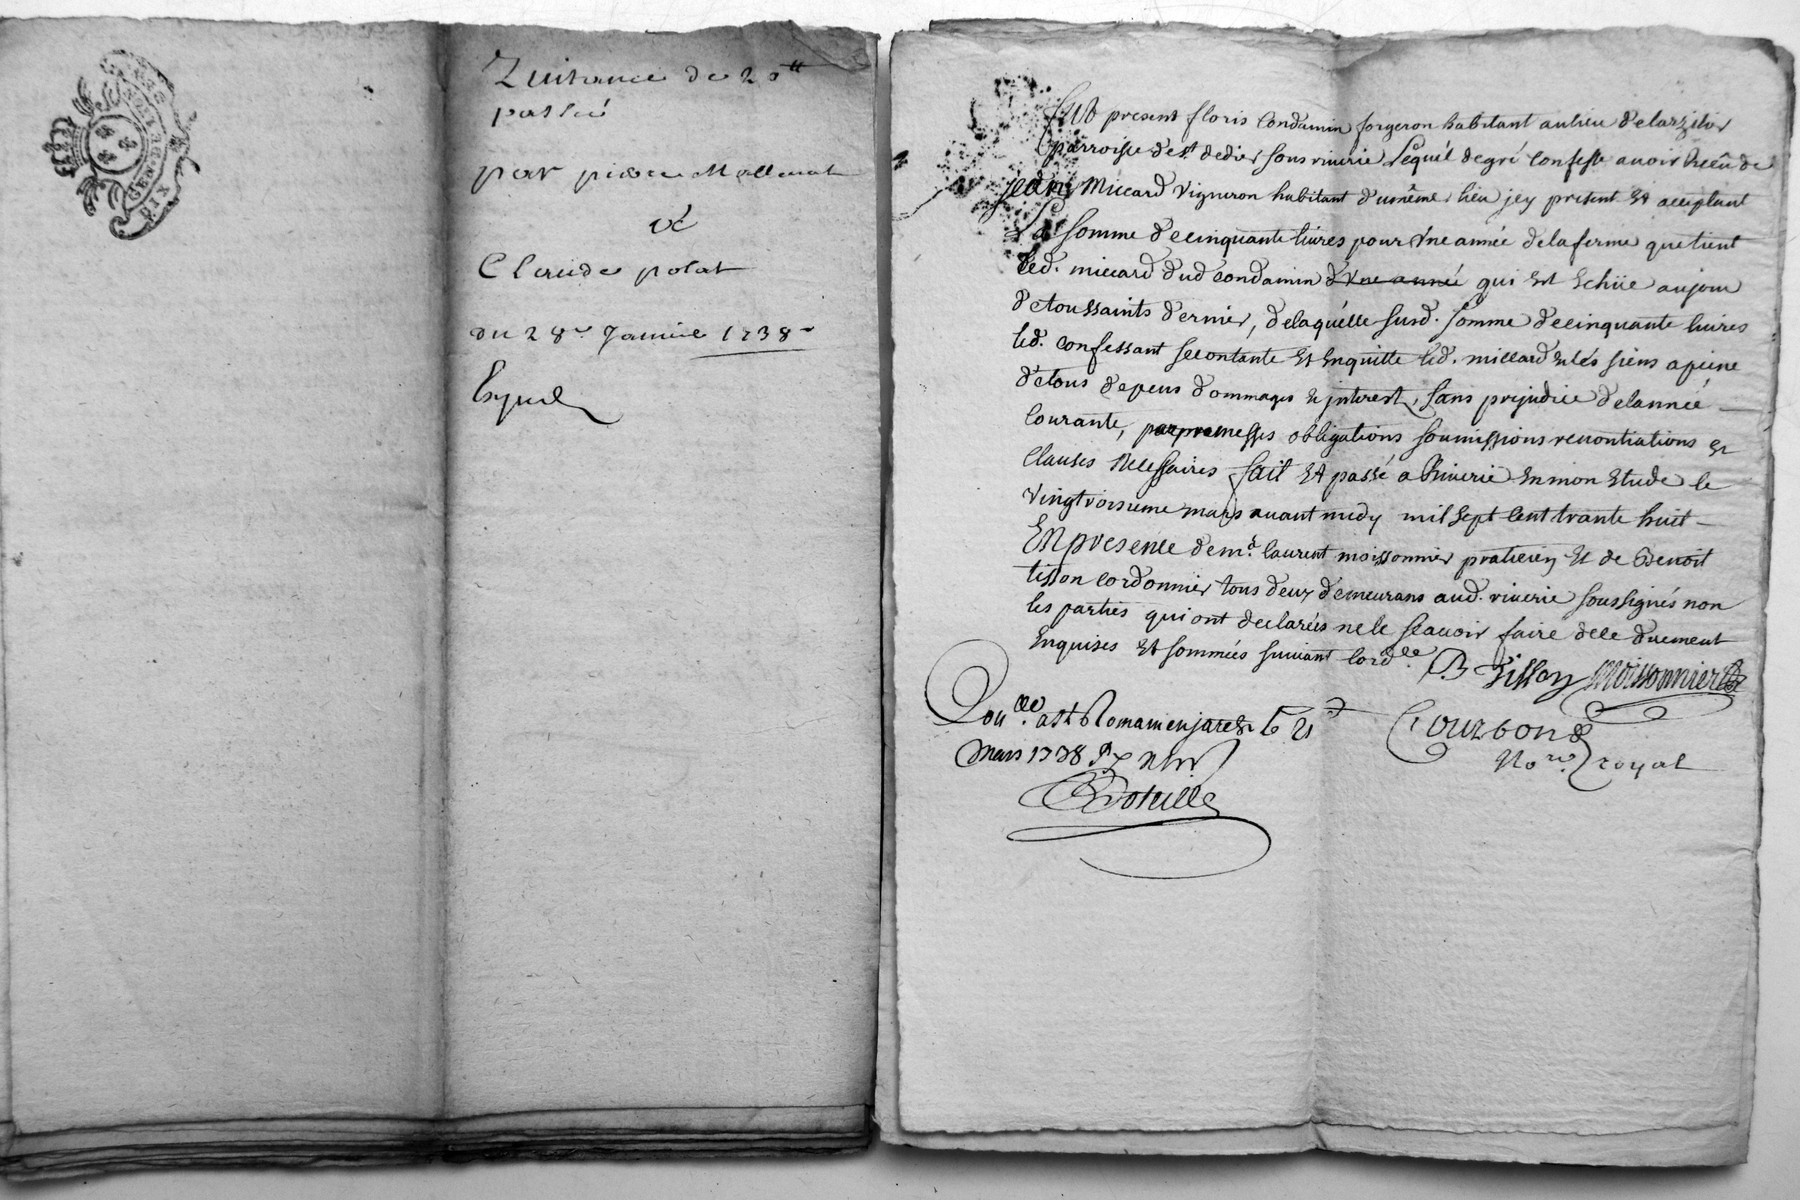 GENERALITE
SIX
Quitance de 20 ₶
passée
par pierre
Claude polat
du 28e Janvier 1738
Fut present floris Condamin forgeron habitant au lieu de
parroisse de st. dedier sous riverie Lequel de gré confesse avoir Receu de
jean Miccard vigneron habitant du même lieu jcy present Et acceptant
La somme de cinquante livres pour Vne année de la ferme que tient
led. miccard dud condamin d'Vne année qui est Echüe au jour
de toussaints dernier, de laquelle susd. somme de cinquante livres
led. confessant se contante Et Enquitte led. miccard Et les siens a peine
de tous depens dommages Et jnterest, sans prejudice de lannée
courante, par promesses obligations soumissions renontiations Et
clauses Necessaires fait Et passé a Riverie En mon Etude le
vingt troisieme mars avant midy mil sept cent trante huit
EN presence de me. laurent moissonnier praticien Et de Benoit
tisson cordonnier tous deux demeurans aud. riverie soussignés non
les parties qui ont declarées ne le scavoir faire de ce duement
Enquises Et sommées suivant lord.ce B Tisson Moissonnier
Con.lle a st Romain en jarest le 21
Mars 1738
Courbon
No.re royal